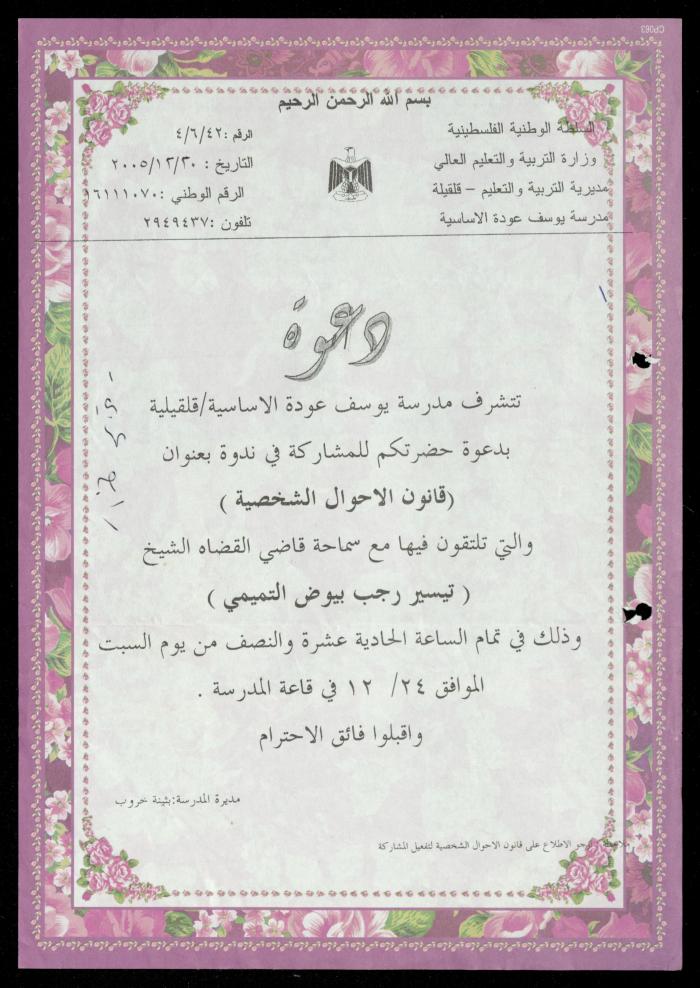 CP063
بسم الله الرحمن الرحيم
السلطة الوطنية الفلسطينية
وزارة التربية والتعليم العالي
مديرية التربية والتعليم – قلقيلة
مدرسة يوسف عودة الاساسية
الرقم :٤/٦/٤٢
التاريخ : ٢٠٠٥/١٢/٢٠
الرقم الوطني :١٦١١١٠٧٠
تلفون :٢٩٤٩٤٣٧
دعوة
تتشرف مدرسة يوسف عودة الاساسية/قلقيلية
بدعوة حضرتكم للمشاركة في ندوة بعنوان
(قانون الاحوال الشخصية )
والتي تلتقون فيها مع سماحة قاضي القضاه الشيخ
( تيسير رجب بيوض التميمي )
وذلك في تمام الساعة الحادية عشرة والنصف من يوم السبت
الموافق ٢٤/ ١٢ في قاعة المدرسة .
واقبلوا فائق الاحترام
مديرة المدرسة:بثينة خروب
ملاحظة : نرجو الاطلاع على قانون الاحوال الشخصية لتفعيل المشاركة